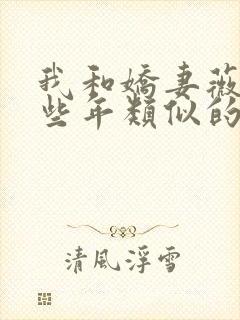 我和嬌妻薇
些年類似的
清風浮雪